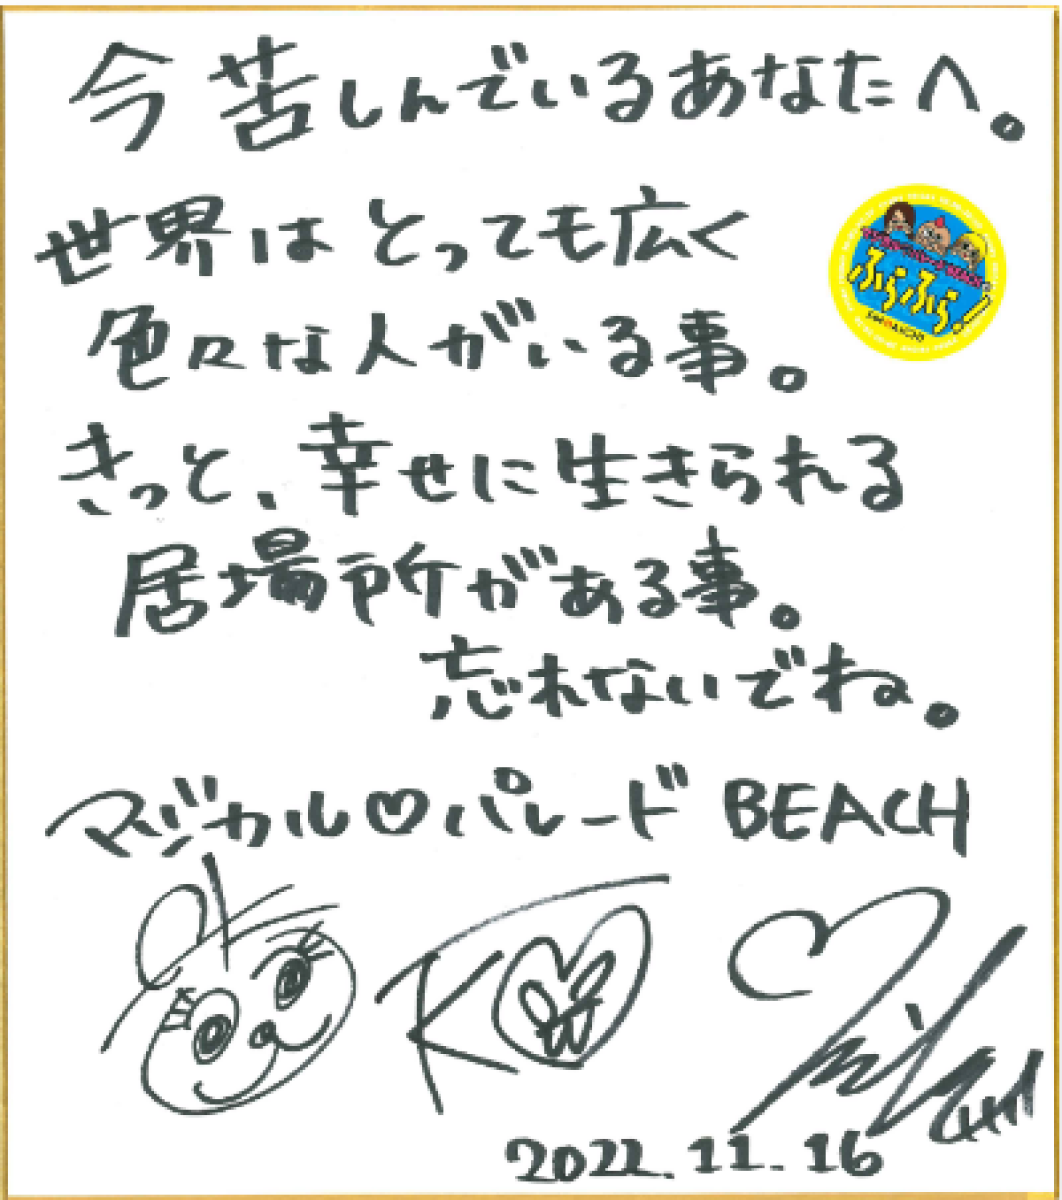 今苦しんでいるあなたへ。
世界はとっても広く
色々な人がいる事。
きっと、幸せに生きられる
居場所がある事。
忘れないでね。
マジカル♡パレード BEACH
2022.11.16
ふらふら!